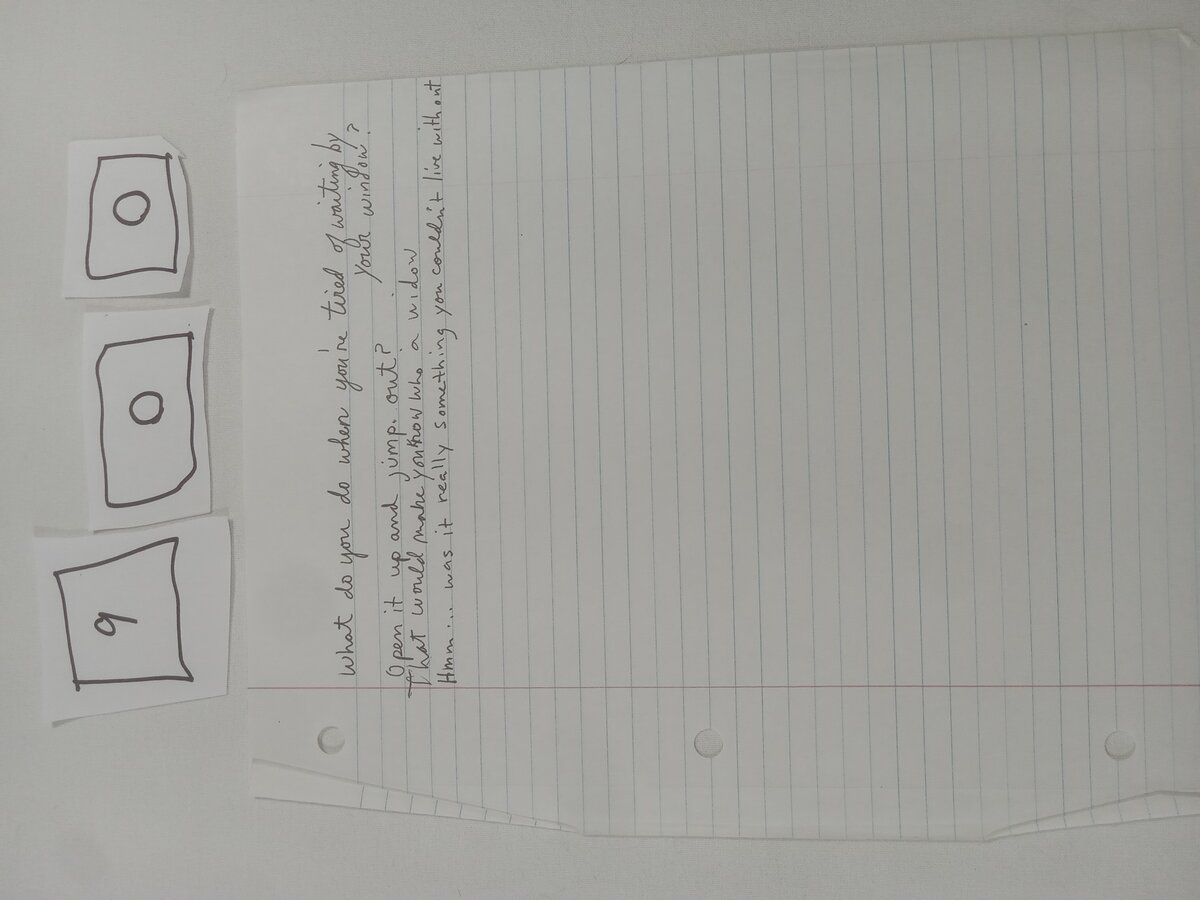 9 0 0
What do you do when you're tired of waiting by
your window?
Open it up and jump. out?
That would make youknow who a widow
Hmm... was it really something you couldn't live without